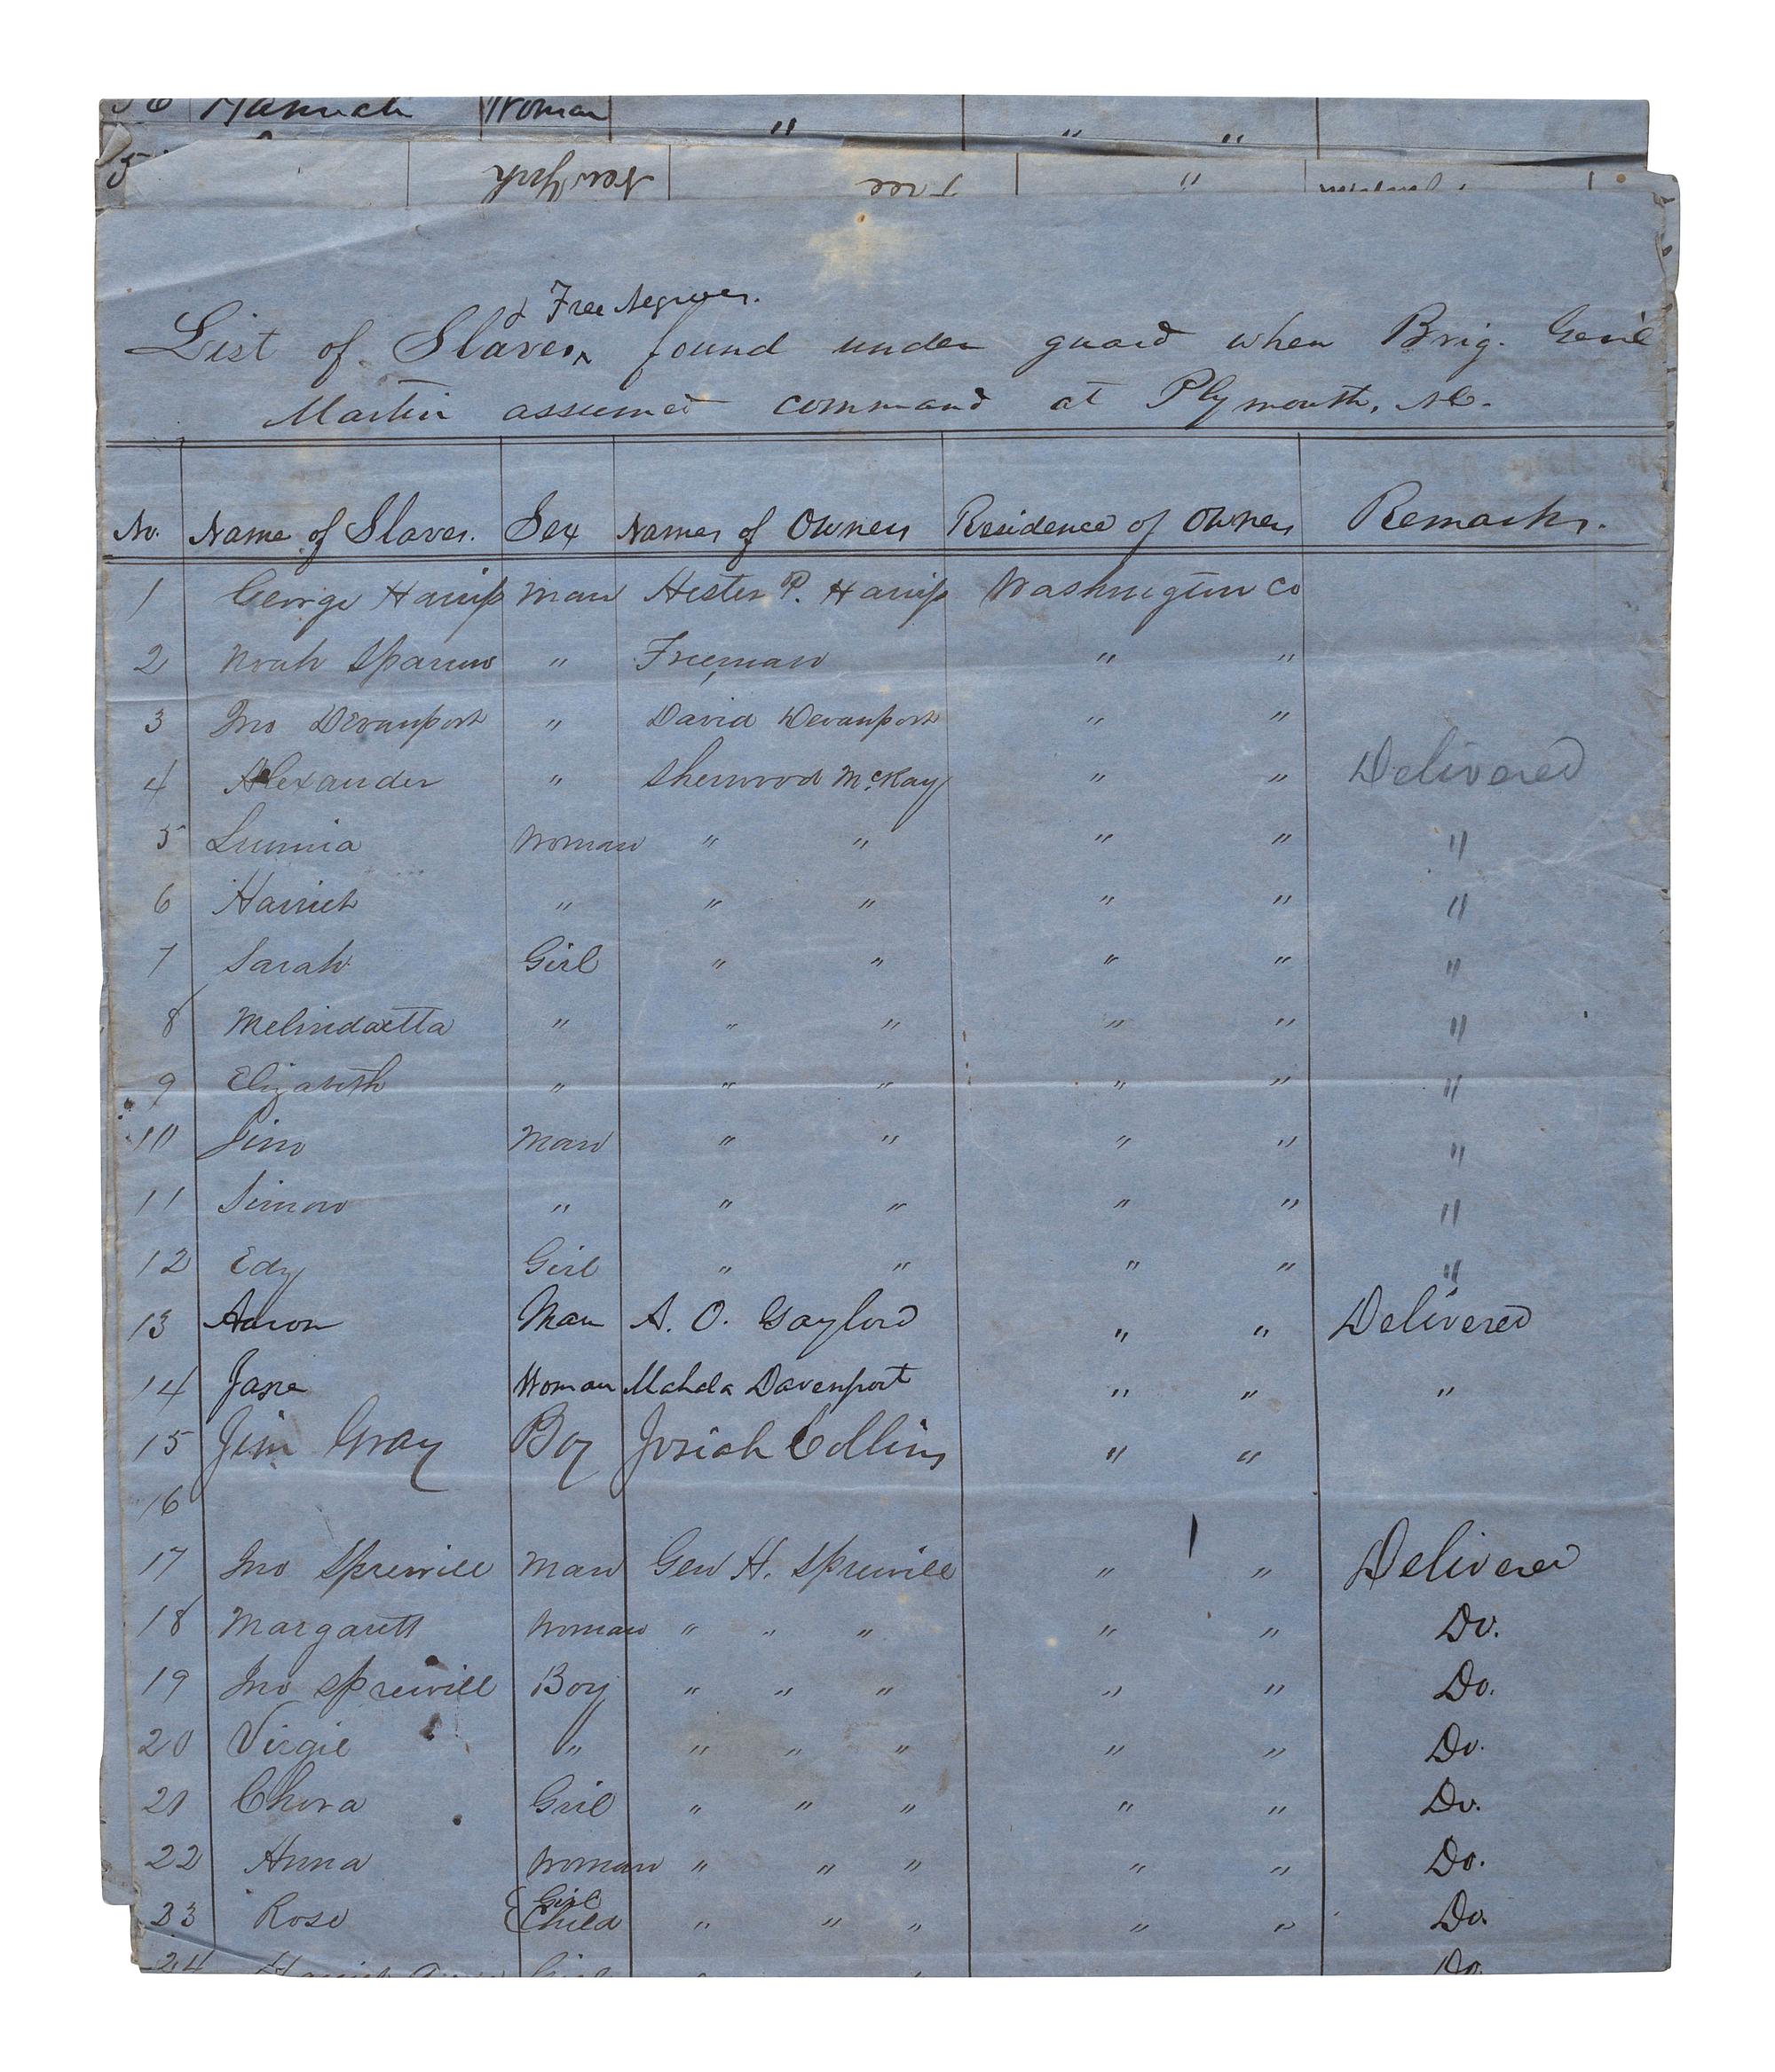 56 Hannah Woman " " "
New York Free "
& Free Negroes.
List of Slaves ^ found under guard when Brig. Genl
Martin assumed command at Plymouth, N.C.
No. Name of Slaves. Sex Names of Owners Residence of Owners Remarks.
1 George Harriss Man Hester P. Harriss Washington Co
2 Noah Sparrow " Freeman " "
3 Jno Devanport " David Devanport " "
4 Alexander " Sherwood McKay " " Delivered
5 Woman " " " " "
6 Harriet " " " " " "
7 Sarah Girl " " " " "
8 Melindaetta " " " " " "
9 Elizabeth " " " " " "
10 Jim Man " " " " "
11 Simon " " " " " "
12 Edy Girl " " " " "
13 Aaron Man A. O. Gaylord " " Delivered
14 Jane Woman Mahala Davenport " " "
15 Jim Gray Boy Josiah Collins " "
16
17 Jno Spruill Man Geo H. Spruill " " Delivered
18 Margarett Woman " " " " " Do.
19 Jno Spruill Boy " " " " " Do.
20 Virgil " " " " " " Do.
21 Girl " " " " " Do.
22 Anna Woman " " " " " Do.
23 Rose { Girl Child " " " " " Do.
24 Harriet Ann Girl Do.